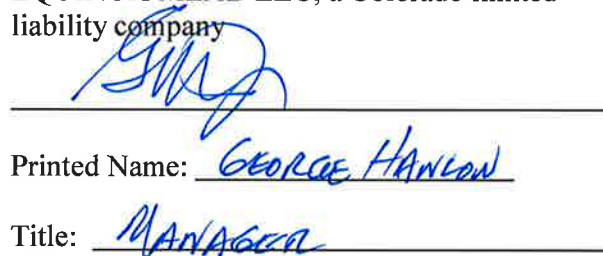 liability company
Printed Name: GEORGE HANLON
Title: MANAGER